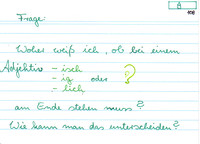 A
Frage:
Woher weiß ich, ob bei einem
Adjektiv - isch
- ig oder ?
- lich
am Ende stehen muss?
Wie kann man das unterscheiden?